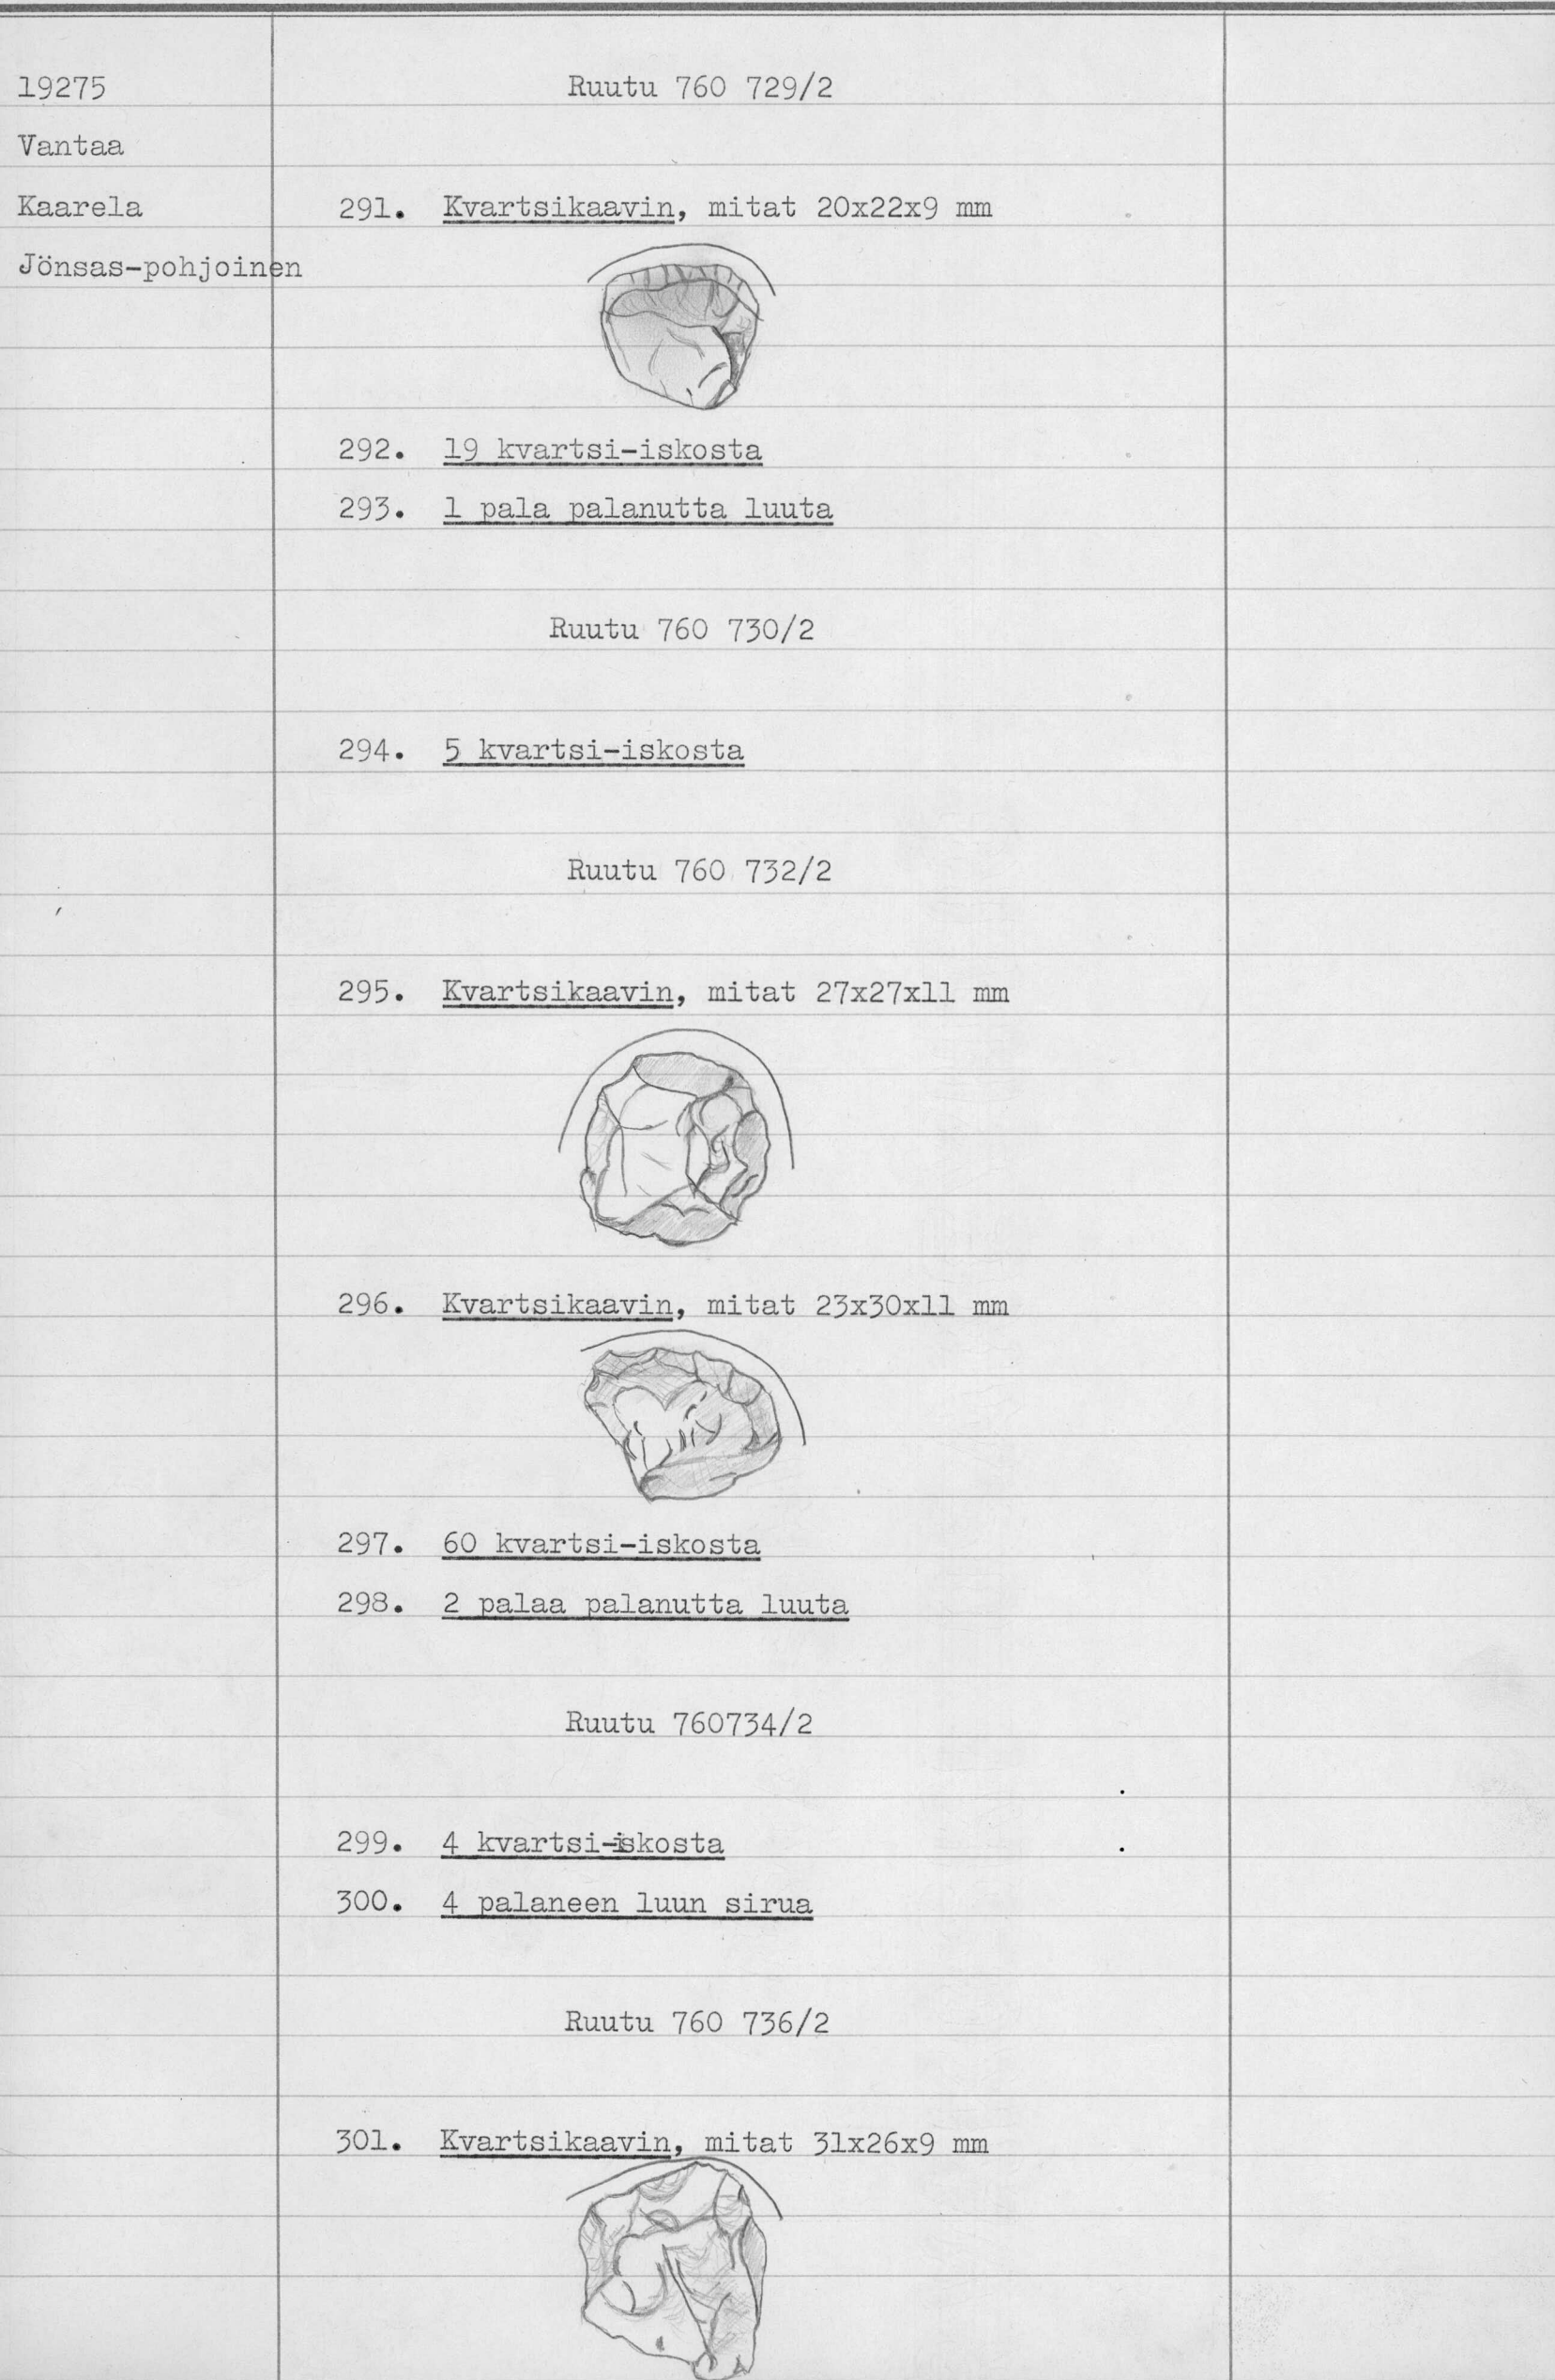 19275
Vantaa
Kaarela
Jönsas-pohjoinen
Ruutu 760 729/2
291. Kvartsikaavin, mitat 20x22x9 mm
292. 19 kvartsi-iskosta
293. 1 pala palanutta luuta
Ruutu 760 730/2
294. 5 kvartsi-iskosta
Ruutu 760 732/2
295. Kvartsikaavin, mitat 27x27x11 mm
296. Kvartsikaavin, mitat 23x30x11 mm
297. 60 kvartsi-iskosta
298. 2 palaa palanutta luuta
Ruutu 760734/2
299. 4 kvartsi-iskosta
300. 4 palaneen luun sirua
Ruutu 760 736/2
301. Kvartsikaavin, mitat 31x26x9 mm